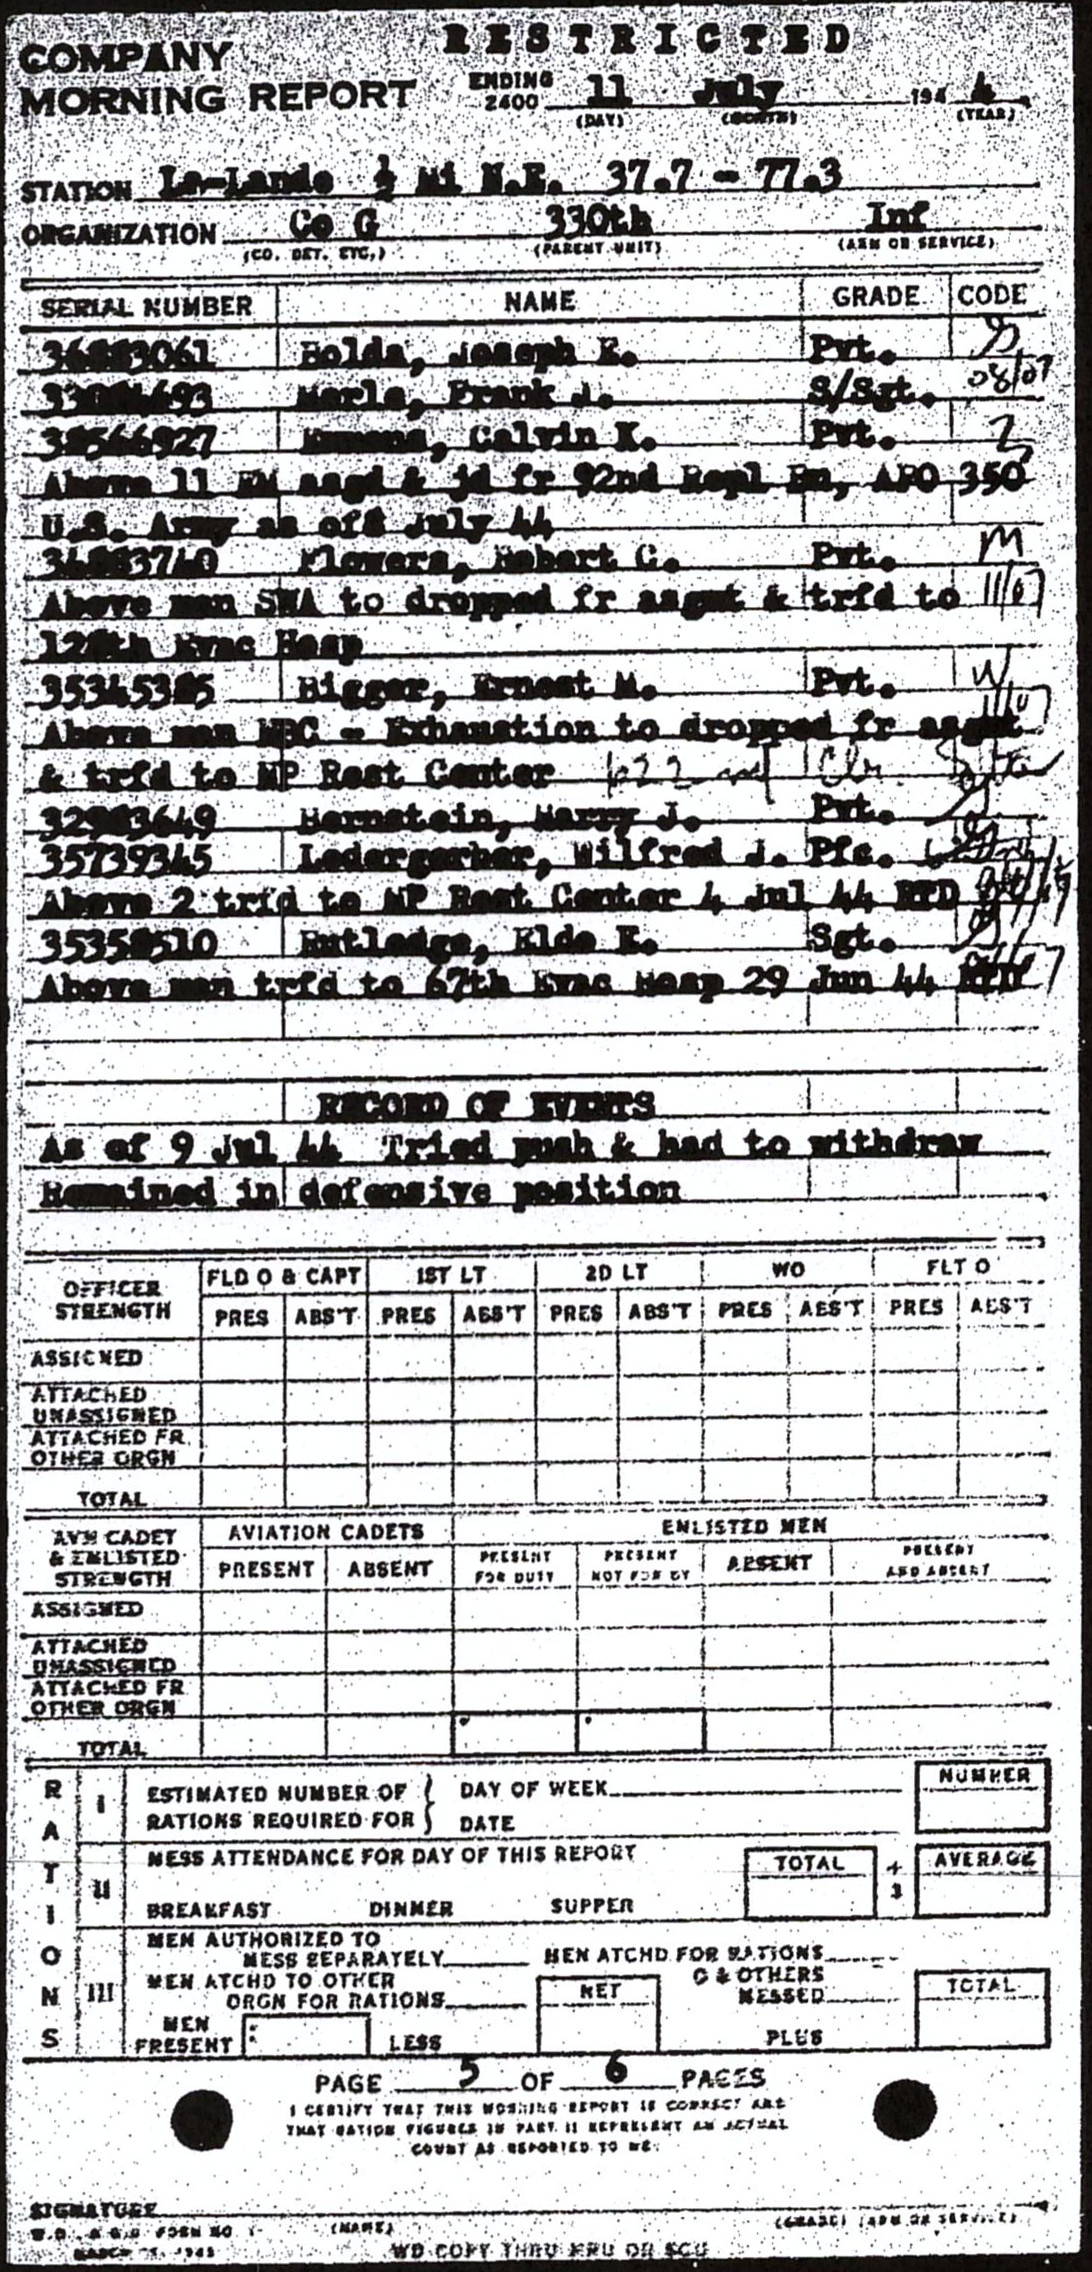 RESTRICTED
COMPANY
MORNING REPORT
ENDING
2400 11 July 194 4
(DAY) (MONTH) (YEAR)
STATION La-Lande ½ Mi N.E. 37.7 - 77.3
ORGANIZATION Co G 330th Inf
(CO. DET. ETC.) (PARENT UNIT) (ARM OR SERVICE)
SERIAL NUMBER NAME GRADE CODE
Bolda, Joseph E. Pvt.
Merla, Frank J. S/Sgt. 08/07
Calvin K. Pvt.
Above 11 EM asgd & jd fr 92nd Repl Bn, APO 350
U.S. Army as of 8 July 44
Flowers, Robert C. Pvt. M
Above man SWA to dropped fr asgmt & trfd to 11/07
128th Evac Hosp
Bigger, Ernest M. Pvt. W
Above man NBC - Exhaustion to dropped fr asgmt 11/07
& trfd to MP Rest Center
Bernstein, Harry J. Pvt.
35739345 Ledergerber, Wilfred J. Pfc.
Above 2 trfd to MP Rest Center 4 Jul 44 RTD
Rutledge, Elde E. Sgt.
Above man trfd to 67th Evac Hosp 29 Jun 44 RTD
RECORD OF EVENTS
As of 9 Jul 44 Tried push & had to withdraw
Remained in defensive position
OFFICER
STRENGTH
FLD O & CAPT 1ST LT 2D LT WO FLT O
PRES ABS'T PRES ABS'T PRES ABS'T PRES ABS'T PRES ABS'T
ASSIGNED
ATTACHED
UNASSIGNED
ATTACHED FR
OTHER ORGN
TOTAL
AVN CADET
& ENLISTED
STRENGTH
AVIATION CADETS ENLISTED MEN
PRESENT ABSENT PRESENT FOR DUTY PRESENT NOT FOR DY ABSENT PRESENT AND ABSENT
ASSIGNED
ATTACHED
UNASSIGNED
ATTACHED FR
OTHER ORGN
TOTAL
RATIONS
I ESTIMATED NUMBER OF DAY OF WEEK NUMBER
RATIONS REQUIRED FOR DATE
II MESS ATTENDANCE FOR DAY OF THIS REPORT TOTAL ÷ 3 AVERAGE
BREAKFAST DINNER SUPPER
III MEN AUTHORIZED TO
MESS SEPARATELY MEN ATCHD FOR RATIONS
MEN ATCHD TO OTHER
ORGN FOR RATIONS NET O & OTHERS
MESSED TOTAL
MEN
PRESENT LESS PLUS
PAGE 5 OF 6 PAGES
I CERTIFY THAT THIS MORNING REPORT IS CORRECT AND
THAT RATION FIGURES IN PART II REPRESENT AN ACTUAL
COUNT AS REPORTED TO ME.
SIGNATURE
(NAME) (GRADE) (ARM OR SERVICE)
W.D., A.G.O. FORM NO. 1
WD COPY THRU MRU OR SCU